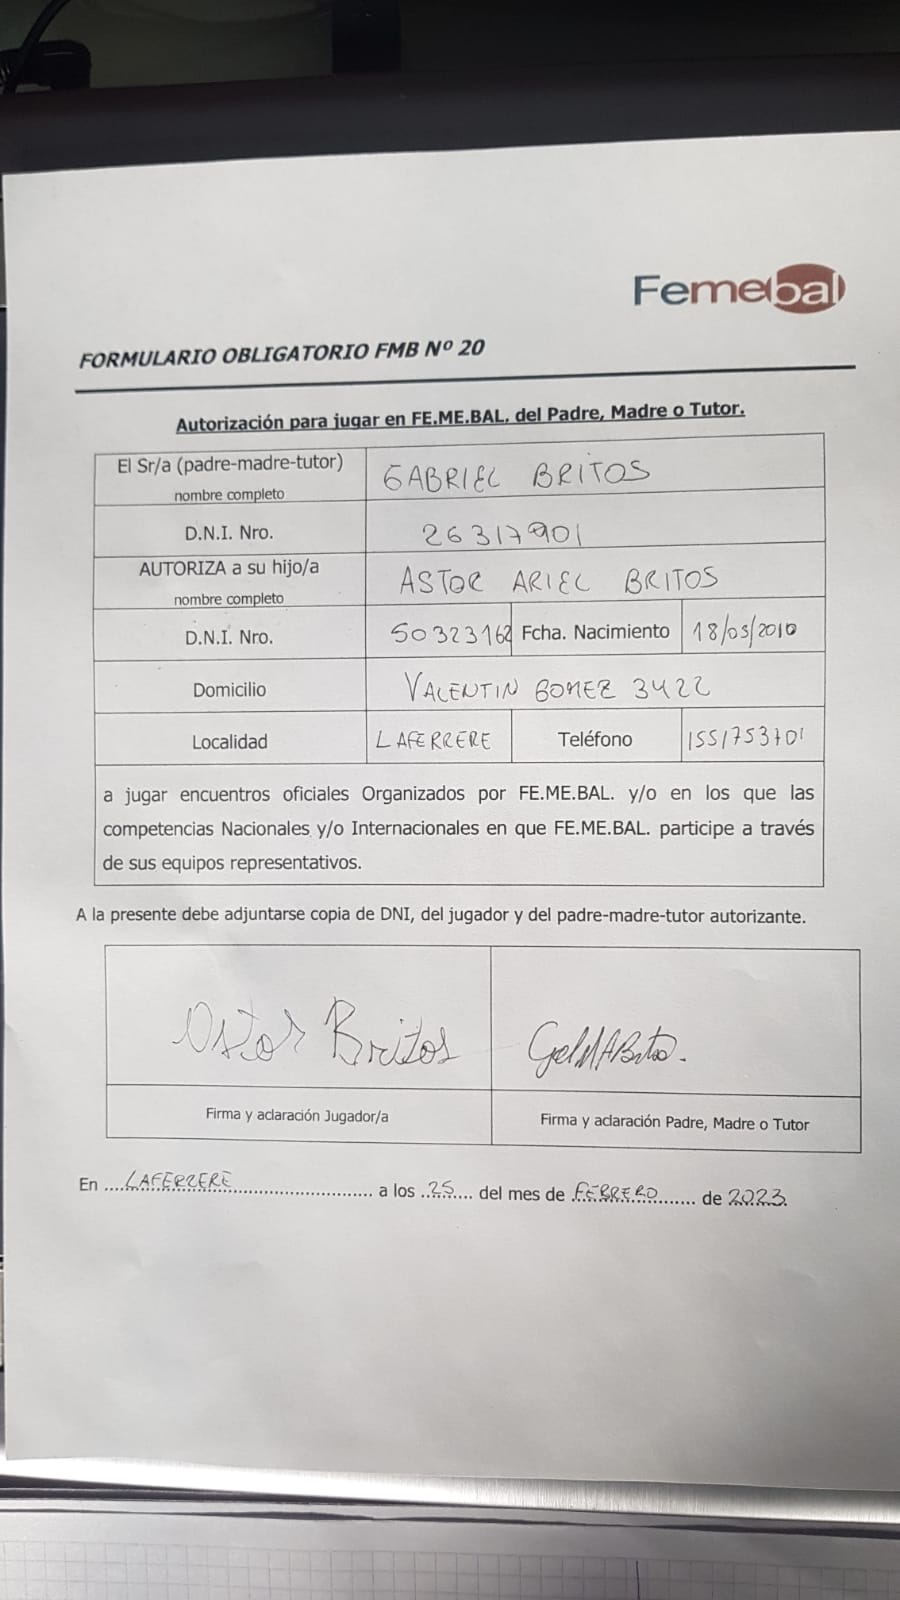 Femebal
FORMULARIO OBLIGATORIO FMB Nº 20
Autorización para jugar en FE.ME.BAL. del Padre, Madre o Tutor.
El Sr/a (padre-madre-tutor) nombre completo GABRIEL BRITOS
D.N.I. Nro. 26317901
AUTORIZA a su hijo/a nombre completo ASTOR ARIEL BRITOS
D.N.I. Nro. 50323162 Fcha. Nacimiento 18/05/2010
Domicilio VALENTIN GOMEZ 3422
Localidad LAFERRERE Teléfono 1551753701
a jugar encuentros oficiales Organizados por FE.ME.BAL. y/o en los que las
competencias Nacionales y/o Internacionales en que FE.ME.BAL. participe a través
de sus equipos representativos.
A la presente debe adjuntarse copia de DNI, del jugador y del padre-madre-tutor autorizante.
Astor Britos
Firma y aclaración Jugador/a Firma y aclaración Padre, Madre o Tutor
En ....LAFERRERE.............................. a los ..25.... del mes de .FEBRERO....... de 2023.